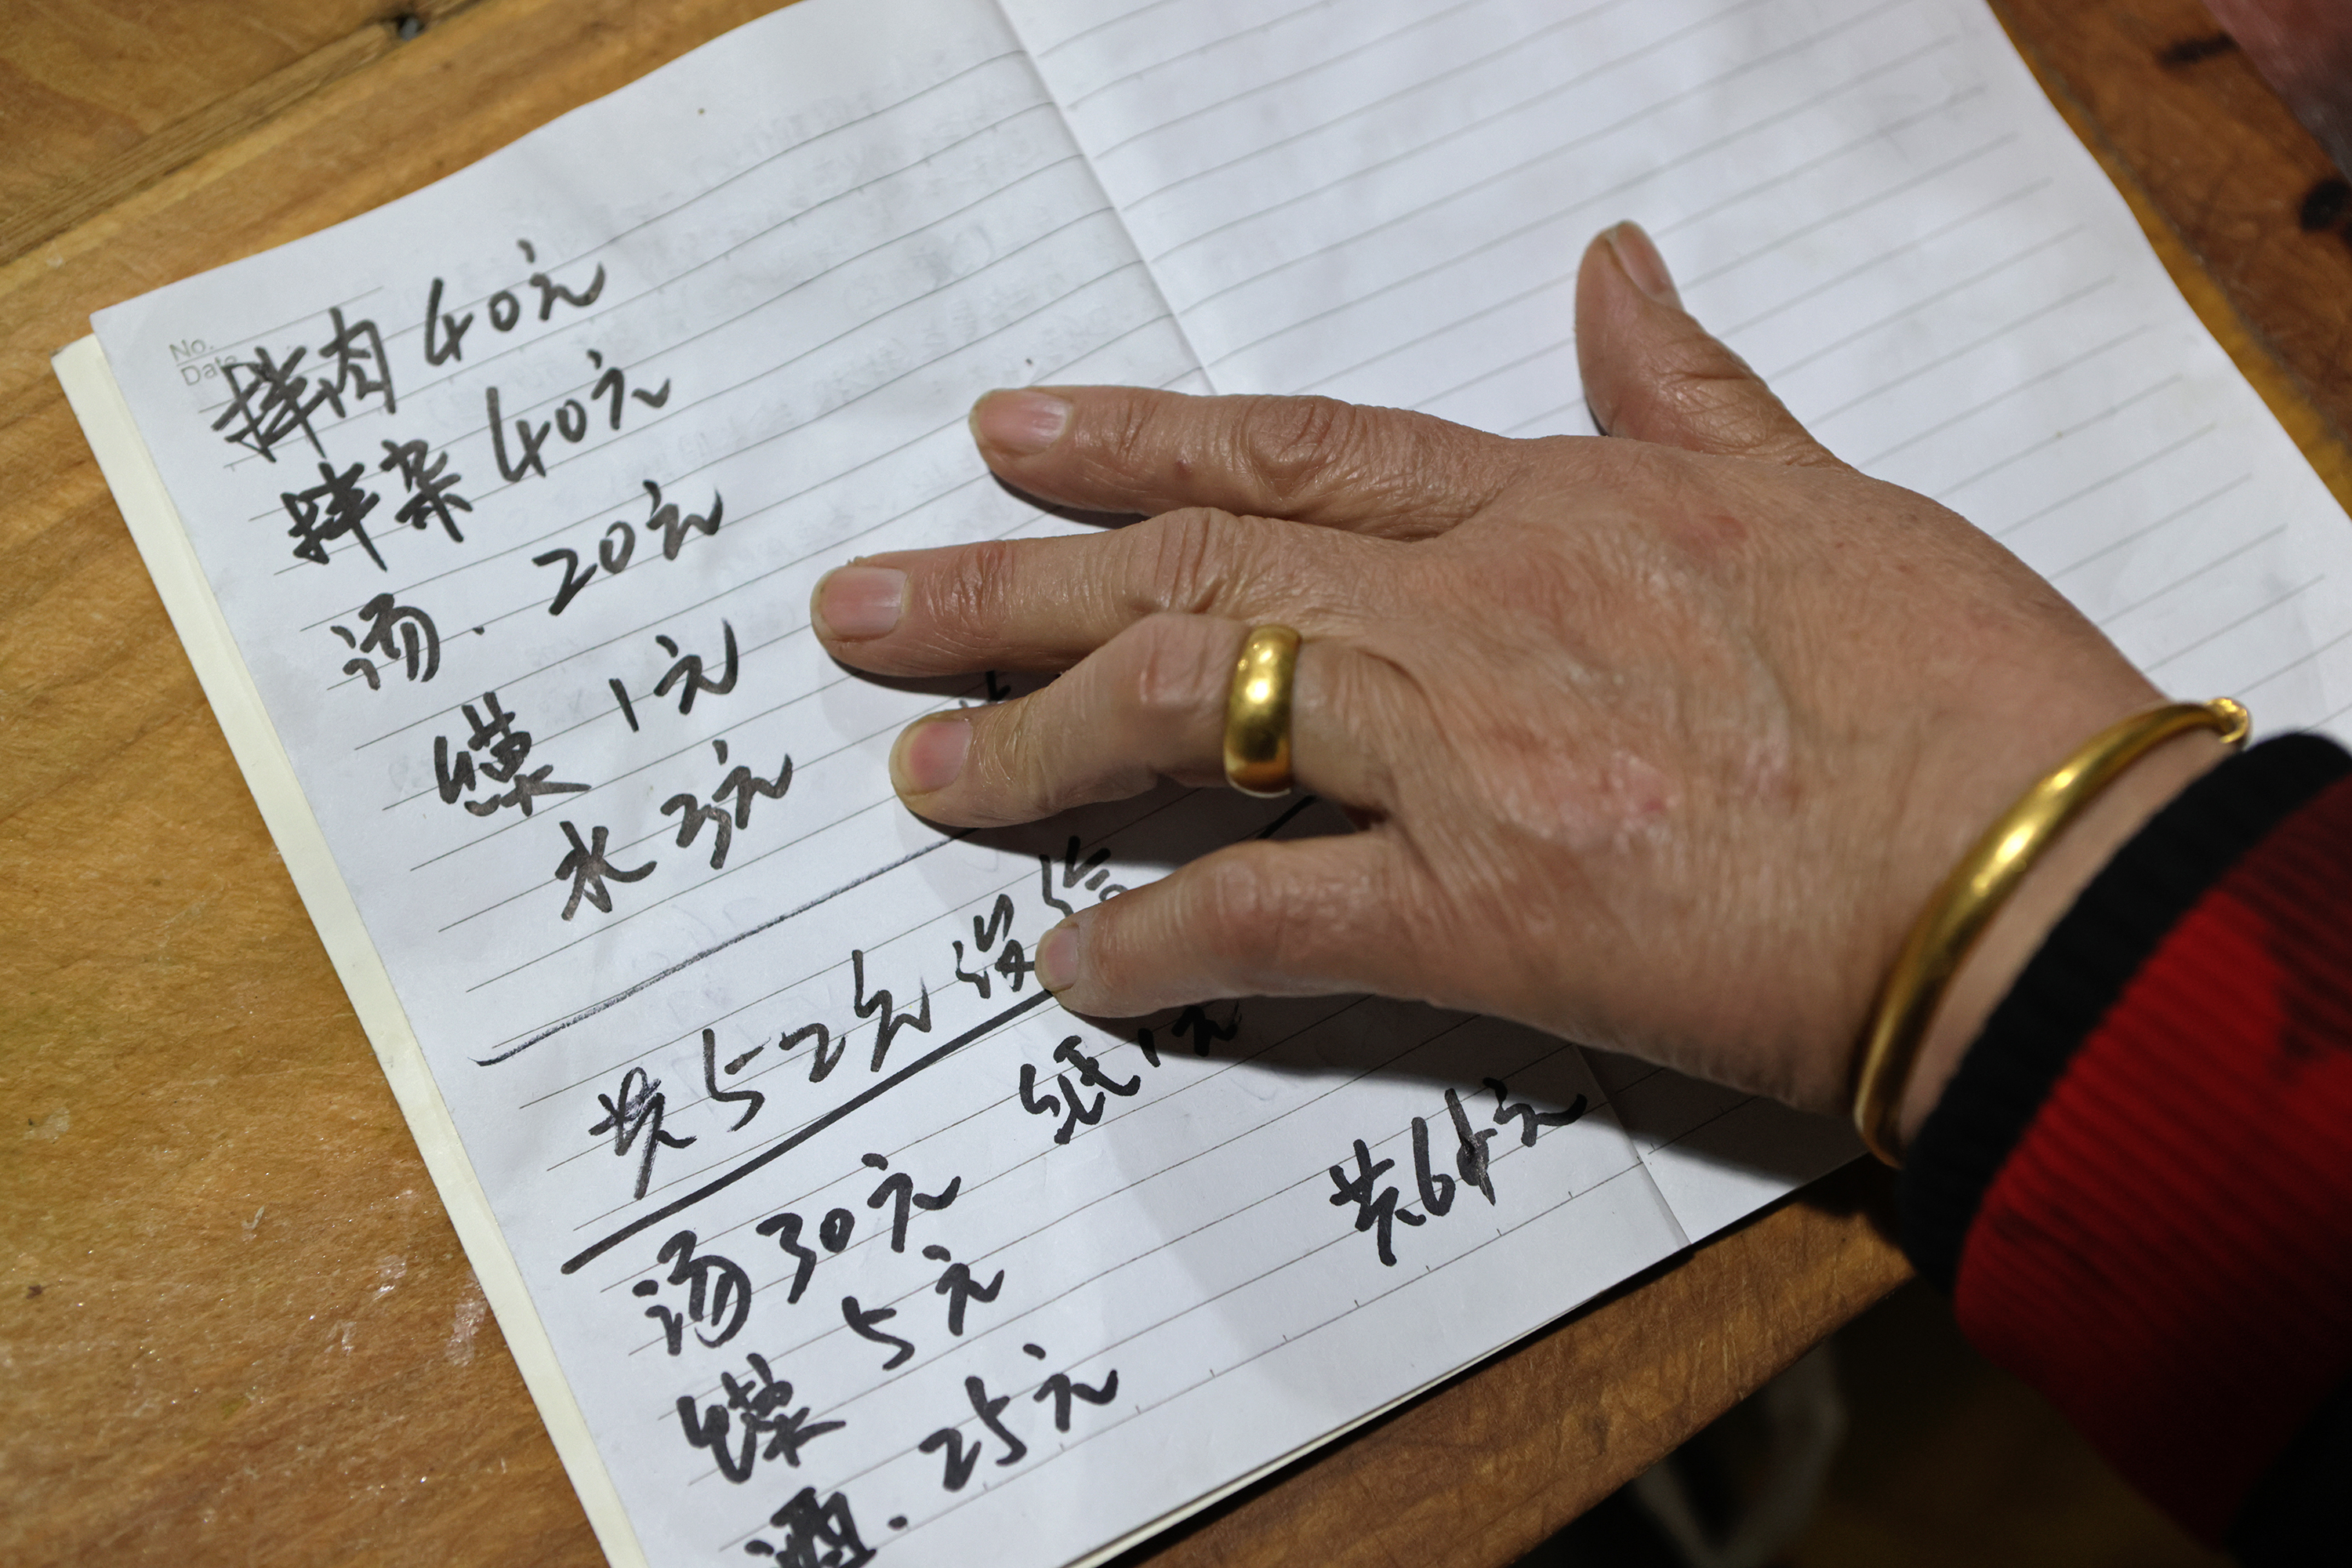 No.
Date
拌肉 40元
拌杂 40元
汤. 20元
馍 1元
水 3元
共52元 没给
纸1元
共64元
汤30元
馍 5元
酒. 25元